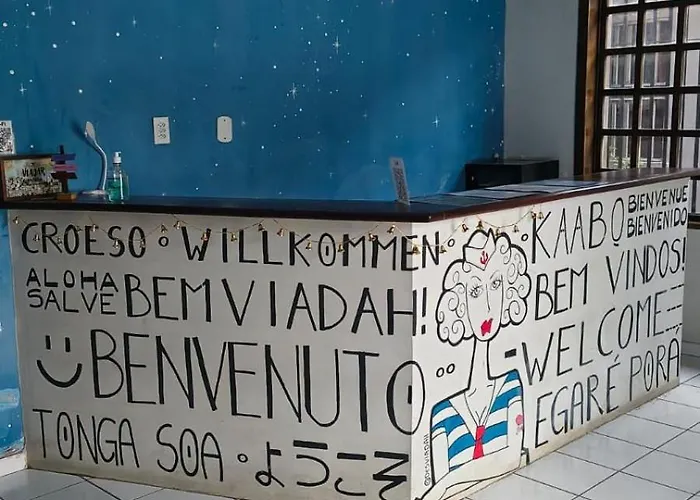 VIAJAR
CROESO • WILLKOMMEN •
ALOHA
SALVE
BEMVIADAH!
BENVENUTO
TONGA SOA • ようこそ
@DRAVIADAH
KAABỌ
BIENVENUE
BIENVENIDO
BEM VINDOS!
WELCOME
EGARÉ PORÁ